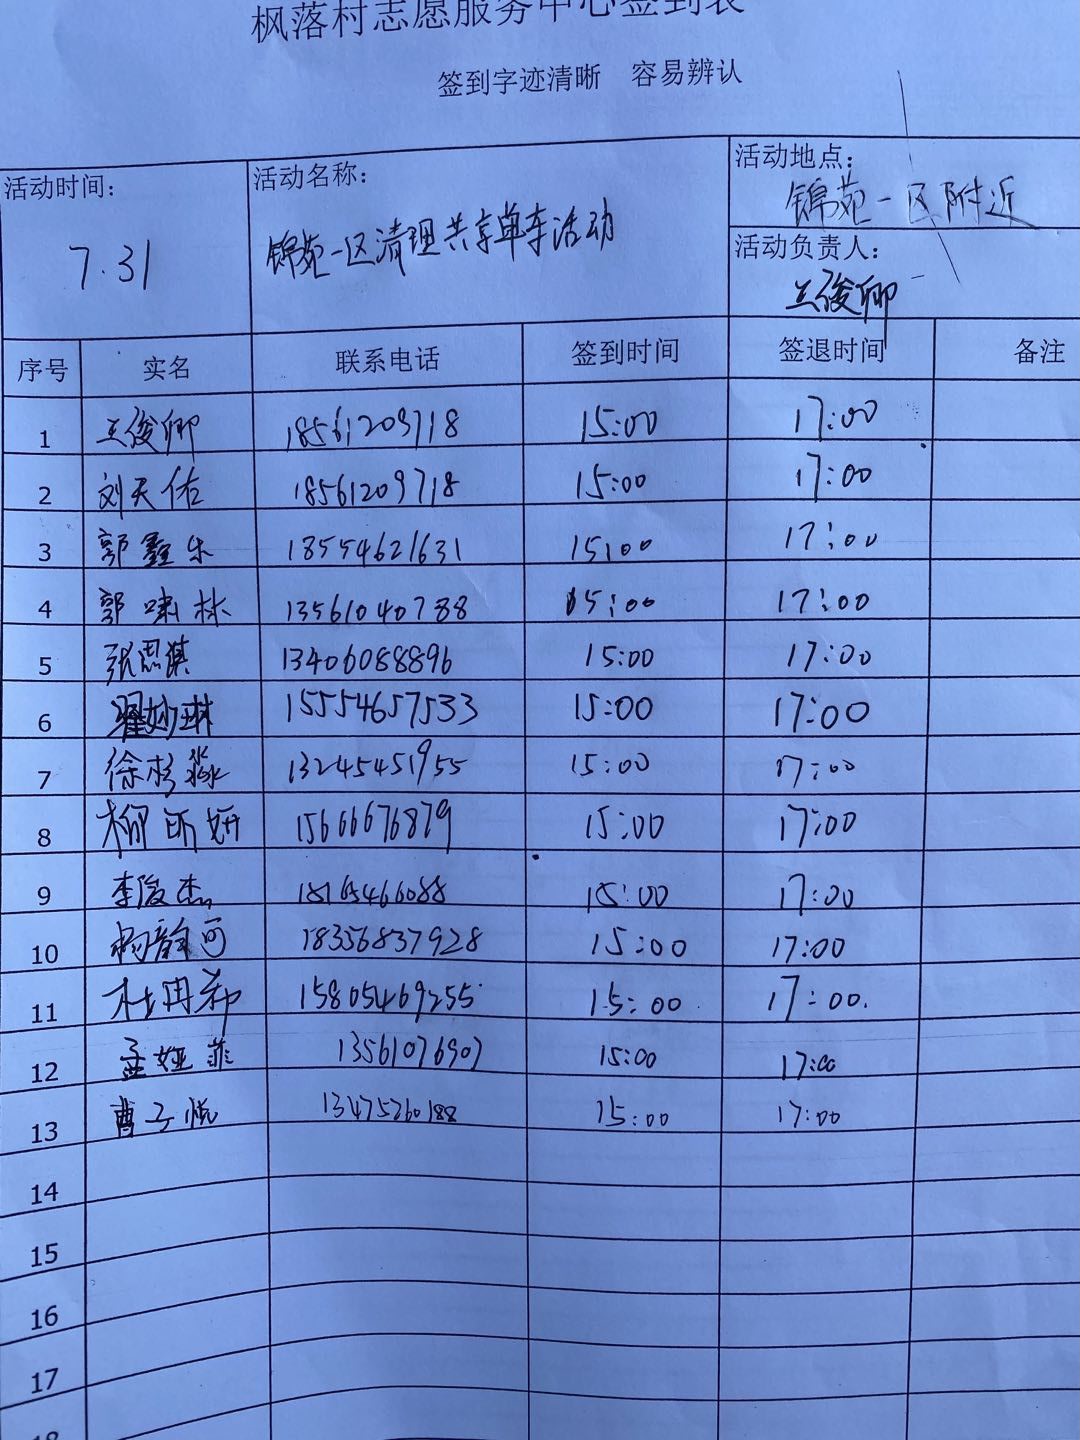 枫落村志愿服务中心签到表
签到字迹清晰 容易辨认
活动时间: 7.31
活动名称: 锦苑一区清理共享单车活动
活动地点: 锦苑一区附近
活动负责人: 王俊卿
序号 实名 联系电话 签到时间 签退时间 备注
1 王俊卿 18561209718 15:00 17:00
2 刘天佑 18561209718 15:00 17:00
3 郭鑫乐 18554621631 15:00 17:00
4 郭啸林 13561040788 15:00 17:00
5 张思淇 13406088896 15:00 17:00
6 翟妙琳 15554657533 15:00 17:00
7 徐杉淼 13245451955 15:00 17:00
8 柳昕妍 15666676879 15:00 17:00
9 李俊杰 18165466088 15:00 17:00
10 杨韵可 18356837928 15:00 17:00
11 杜冉 15805469255 15:00 17:00
12 孟娅菲 13561076907 15:00 17:00
13 曹子悦 13475260188 15:00 17:00
14
15
16
17
18